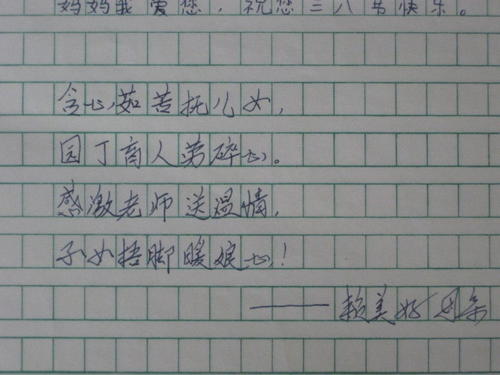 妈妈我爱您，祝您三八节快乐。
含心茹苦抚儿女，
园丁育人劳碎心。
感激老师送温情，
子女捂脚暖娘心！
——赖美好 母亲